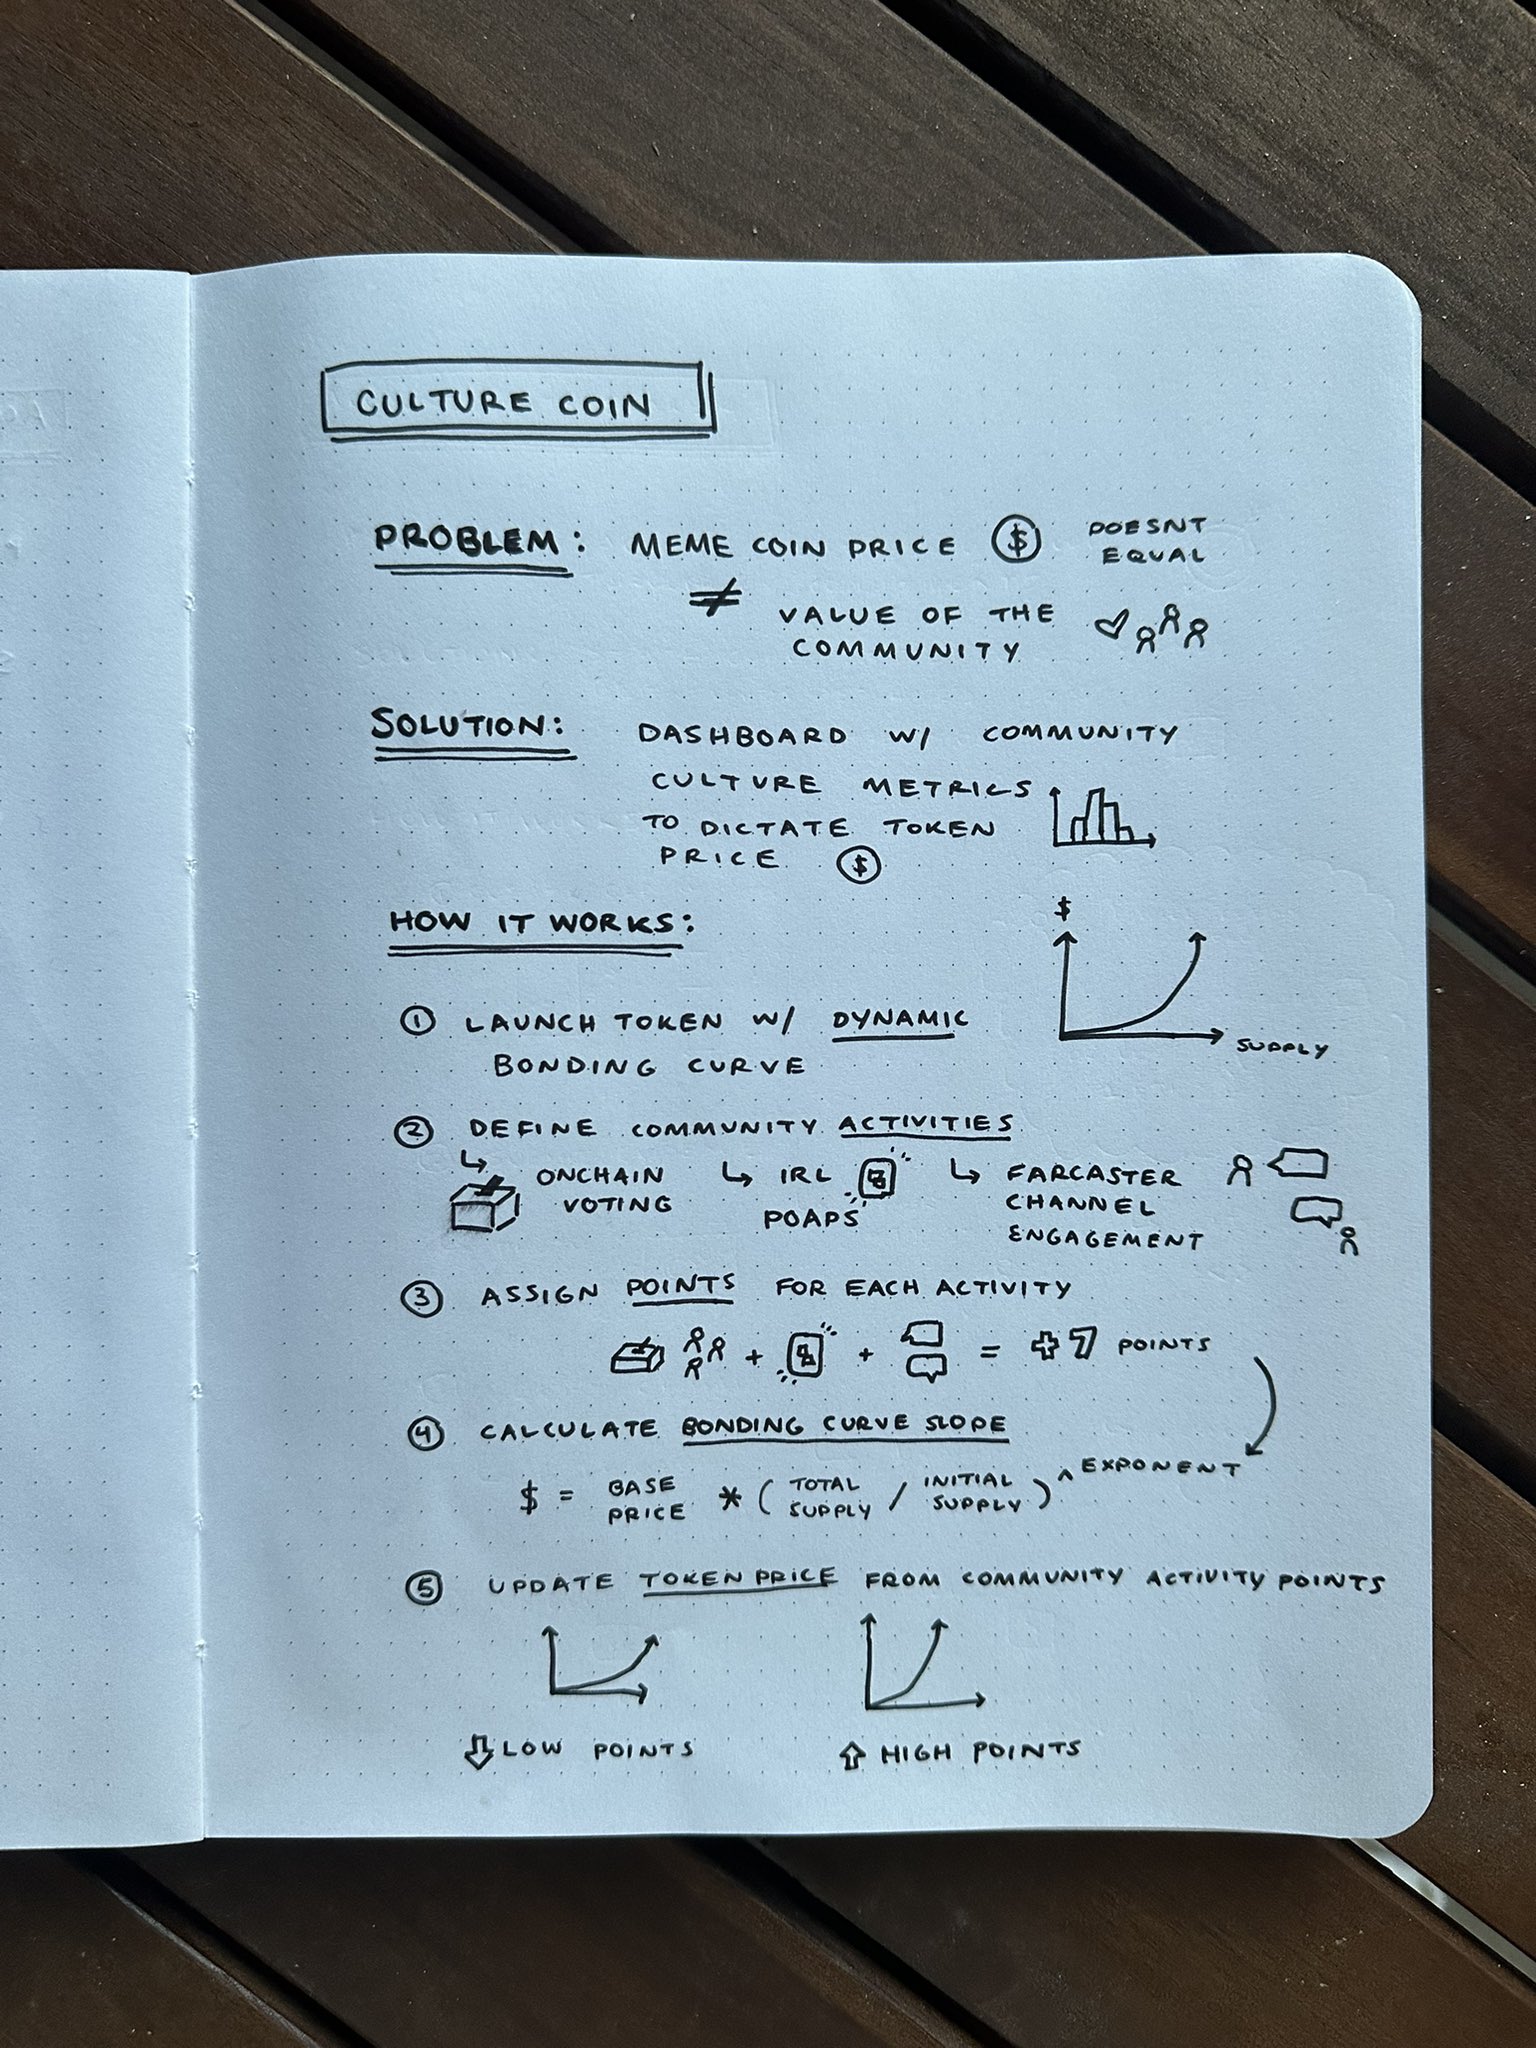 CULTURE COIN
PROBLEM: MEME COIN PRICE $ DOESNT
EQUAL
≠ VALUE OF THE
COMMUNITY
SOLUTION: DASHBOARD W/ COMMUNITY
CULTURE METRICS
TO DICTATE TOKEN
PRICE $
HOW IT WORKS:
$
SUPPLY
1 LAUNCH TOKEN W/ DYNAMIC
BONDING CURVE
2 DEFINE COMMUNITY ACTIVITIES
↳ ONCHAIN
VOTING
↳ IRL
POAPS
↳ FARCASTER
CHANNEL
ENGAGEMENT
3 ASSIGN POINTS FOR EACH ACTIVITY
+ + = +7 POINTS
4 CALCULATE BONDING CURVE SLOPE
$ = BASE PRICE * (TOTAL SUPPLY / INITIAL SUPPLY) ^ EXPONENT
5 UPDATE TOKEN PRICE FROM COMMUNITY ACTIVITY POINTS
⇩ LOW POINTS
⇧ HIGH POINTS